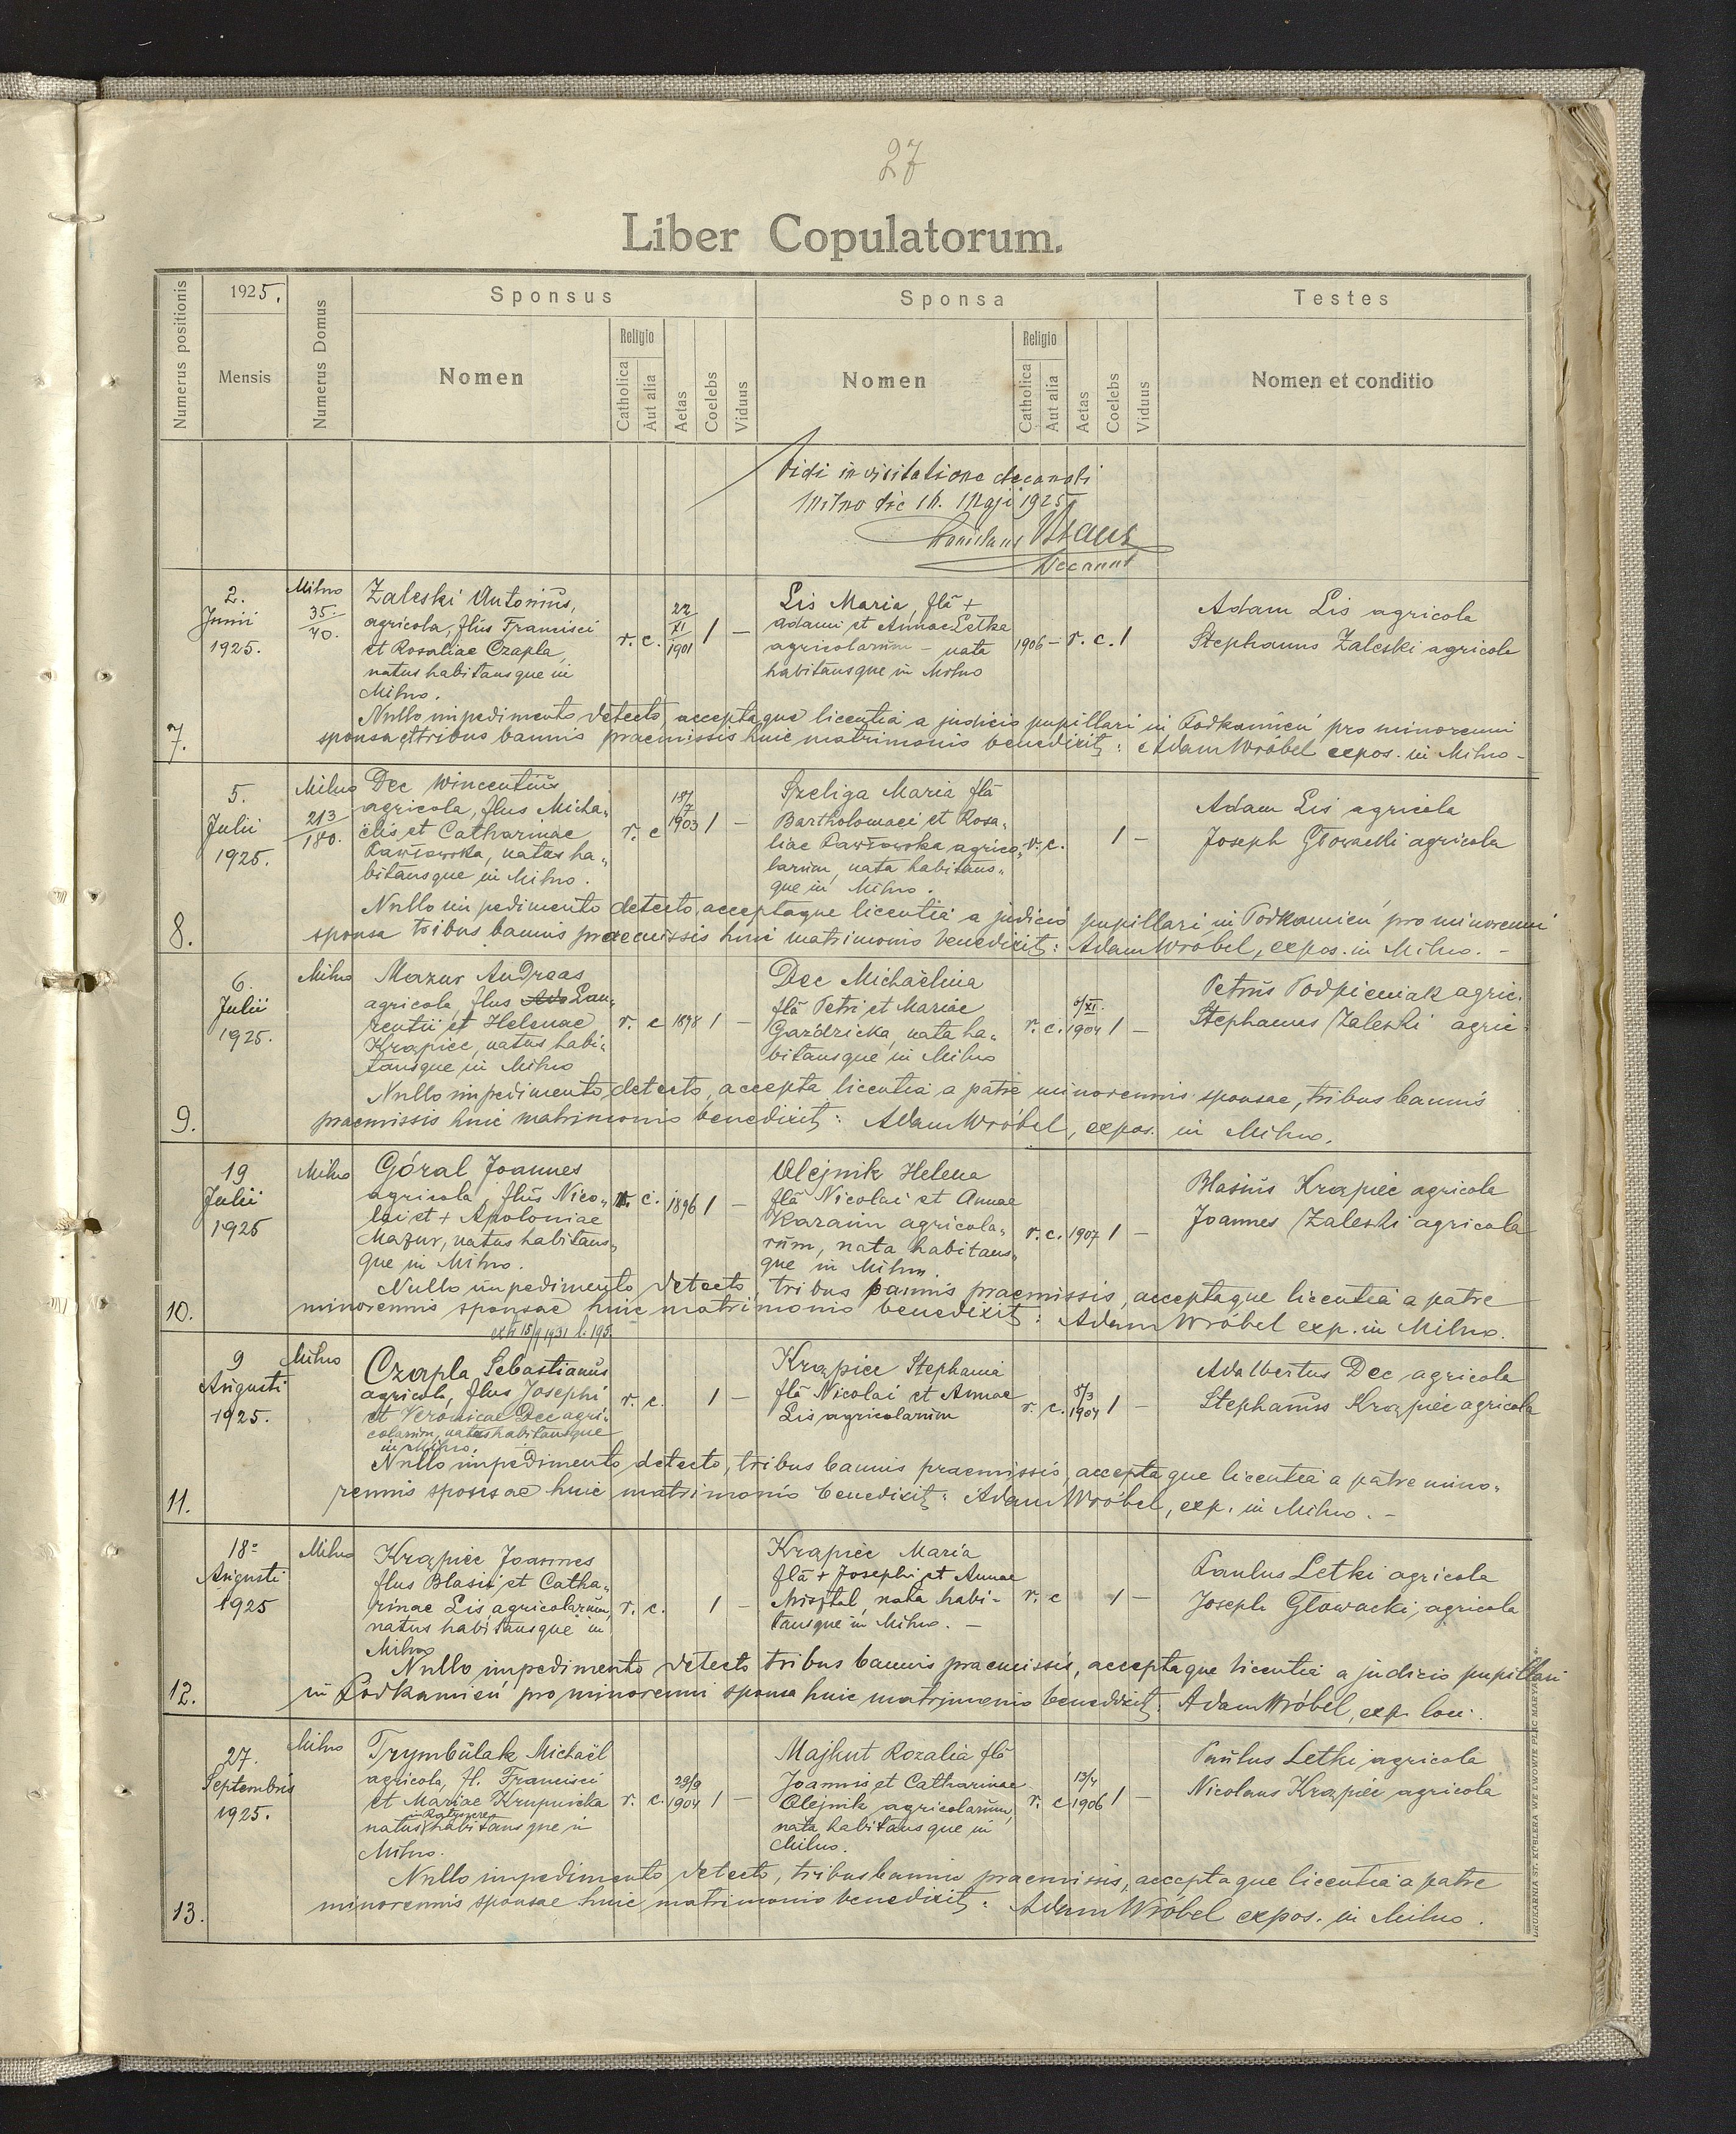 27
Liber Copulatorum.
Numerus positionis
1925.
Mensis
Numerus Domus
Sponsus
Nomen
Religio
Catholica
Aut alia
Aetas
Coelebs
Viduus
Sponsa
Nomen
Religio
Catholica
Aut alia
Aetas
Coelebs
Viduus
Testes
Nomen et conditio
Vidi in visitatione decanali
Milno die 16. Maji 1925
Decanus
7.
2.
Junii
1925.
Milno
35.
40.
Zaleski Antonius,
agricola, flius Francisci
et Rosaliae Czapla,
natus habitansque in
Milno.
r. c.
22
XI
1901
1 –
Lis Maria, flā +
Adami et Annae Letka
agricolarum – nata
habitansque in Milno
1906 – r. c. 1
Adam Lis agricola
Stephanus Zaleski agricola
Nullo impedimento detecto, acceptaque licentia a judicio pupillari in Podkamień pro minorenni
sponsa et tribus bannis praemissis huic matrimonio benedixit: Adam Wróbel expos. in Milno –
8.
5.
Julii
1925.
Milno
213
180.
Dec Wincentius
agricola, flus Micha-
ëlis et Catharinae
Pawłowska, natus ha-
bitansque in Milno.
r. c
18/
7
1903 1 –
Szeliga Maria flā
Bartholomaei et Rosa-
liae Pawłowska agrico-
larum, nata habitans-
que in Milno.
r. c. 1 –
Adam Lis agricola
Joseph Głowacki agricola
Nullo impedimento detecto, acceptaque licentia a judicio pupillari in Podkamień pro minorenni
sponsa tribus bannis praemissis huic matrimonio benedixit: Adam Wróbel, expos. in Milno. –
9.
6.
Julii
1925.
Milno
Mazur Andreas
agricola, flus Lau-
rentii et Helenae
Krąpiec, natus habi-
tansque in Milno
r. c 1898 1 –
Dec Michaëlina
flā Petri et Mariae
Gaździcka, nata ha-
bitansque in Milno
r. c.
6/XI.
1904 1 –
Petrus Podpieniak agric.
Stephanus Zaleski agric.
Nullo impedimento detecto, accepta licentia a patre minorennis sponsae, tribus bannis
praemissis huic matrimonio benedixit: Adam Wróbel, expos. in Milno.
10.
19
Julii
1925
Milno
Góral Joannes
agricola, flius Nico-
lai et + Apoloniae
Mazur, natus habitans-
que in Milno.
r. c. 1896 1 –
Olejnik Helena
flā Nicolai et Annae
Karaim agricola-
rum, nata habitans-
que in Milno.
r. c. 1907 1 –
Blasius Krąpiec agricola
Joannes Zaleski agricola
Nullo impedimento detecto, tribus bannis praemissis, acceptaque licentia a patre
minorennis sponsae huic matrimonio benedixit: Adam Wróbel exp. in Milno.
11.
9
Augusti
1925.
Milno
15/9 1931 l. 195.
Czapla Sebastianus
agricola, flus Josephi
et Veronicae Dec agri-
colarum, natus habitansque
in Milno.
r. c. 1 –
Krąpiec Stephania
flā Nicolai et Annae
Lis agricolarum
r. c.
5/3
1904 1 –
Adalbertus Dec agricola
Stephanus Krąpiec agricola
Nullo impedimento detecto, tribus bannis praemissis, acceptaque licentia a patre mino-
rennis sponsae huic matrimonio benedixit: Adam Wróbel, exp. in Milno. –
12.
18
Augusti
1925
Milno
Krąpiec Joannes
flus Blasii et Catha-
rinae Lis agricolarum,
natus habitansque in
Milno
r. c. 1 –
Krąpiec Maria
flā + Josephi et Annae
Misztal, nata habi-
tansque in Milno. –
r. c 1 –
Paulus Letki agricola
Joseph Głowacki, agricola
Nullo impedimento detecto tribus bannis praemissis, acceptaque licentia a judicio pupillari
in Podkamień pro minorenni sponsa huic matrimonio benedixit: Adam Wróbel, exp. loci.
13.
27.
Septembris
1925.
Milno
Trymbulak Michaël
agricola, fl. Francisci
et Mariae Krupnicka
natus habitansque in
Milno.
r. c.
29/9
1904 1 –
Majkut Rozalia flā
Joannis et Catharinae
Olejnik agricolarum,
nata habitansque in
Milno.
r. c
13/4
1906 1 –
Paulus Letki agricola
Nicolaus Krąpiec agricola
Nullo impedimento detecto, tribus bannis praemissis, acceptaque licentia a patre
minorennis sponsae huic matrimonio benedixit: Adam Wróbel expos. in Milno.
DRUKARNIA ST. KÜBLERA WE LWOWIE PLAC MARYACKI